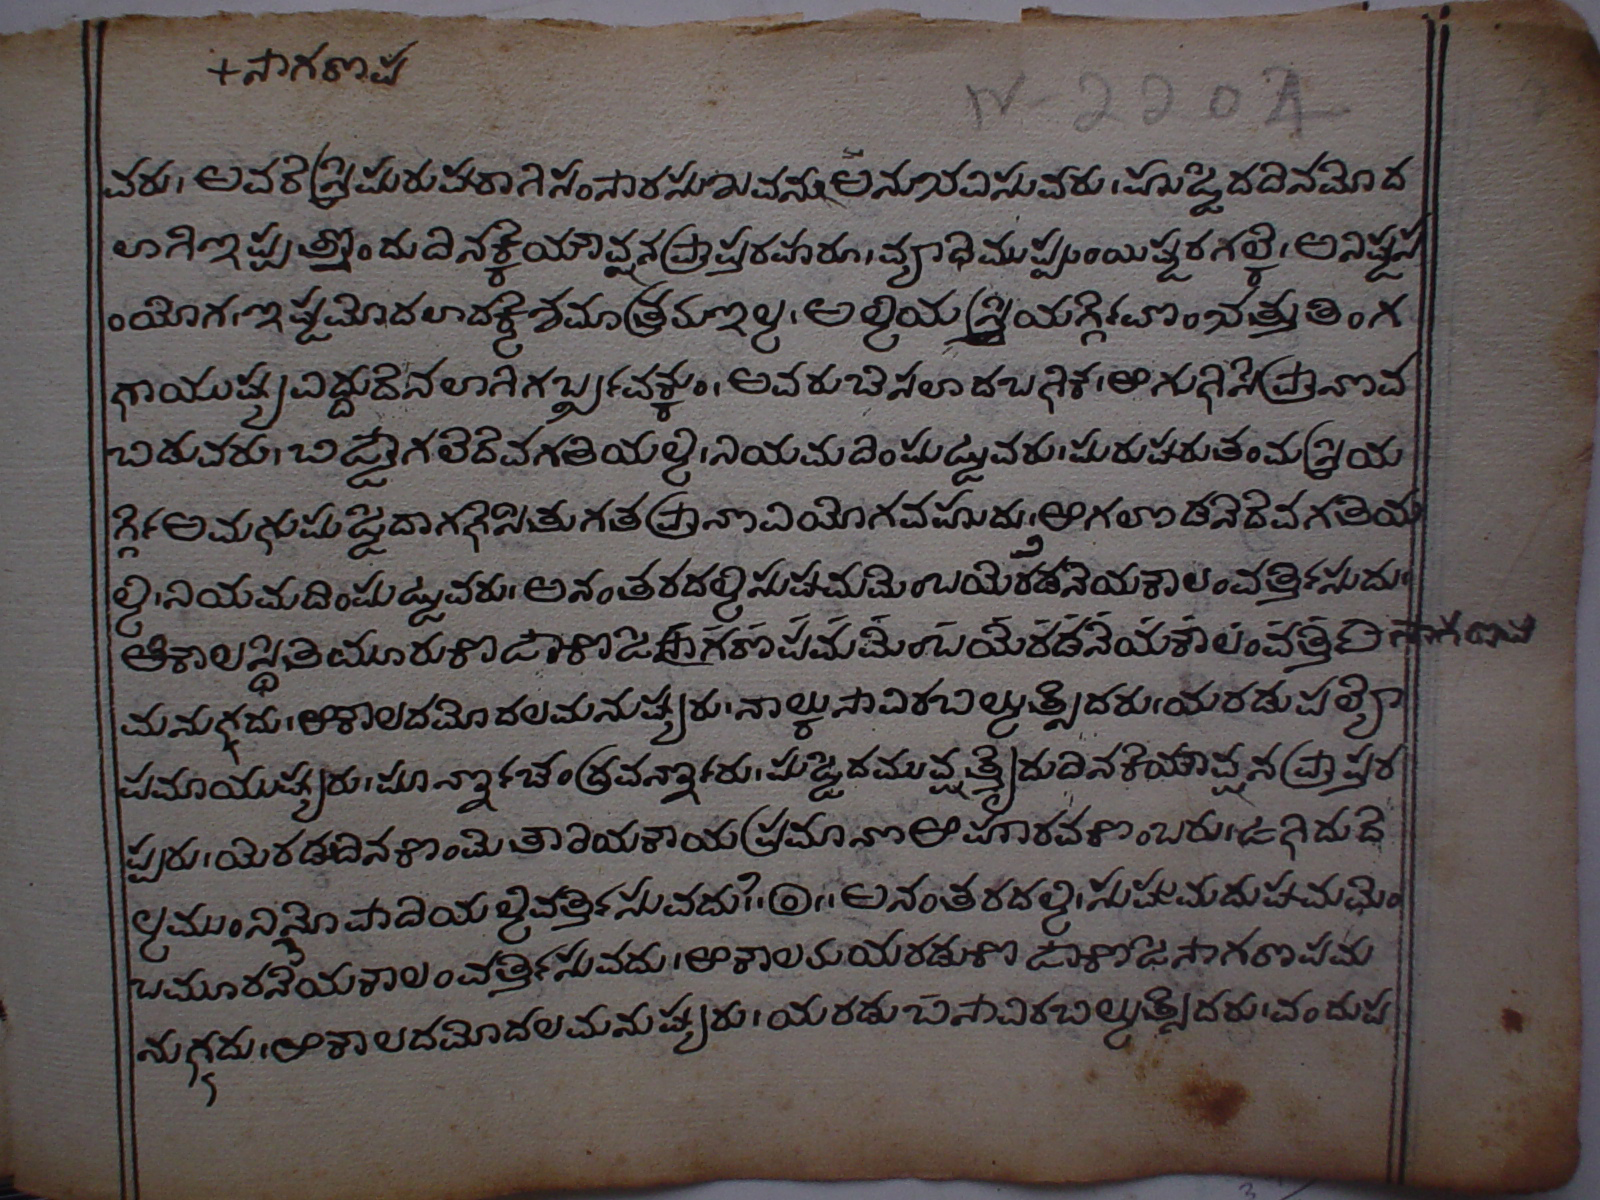 +ಸಾಗರೊಪ
N-220A
ವರು। ಅವರೆ ಸ್ತ್ರಿಪುರುಷರಾಗಿ ಸಂಸಾರಸುಖವನು ಅನುಭವಿಸುವರು। ಹುಟ್ಟಿದ ದಿನ ಮೊದ
ಲಾಗಿ ಇಪ್ಪತ್ತೊಂದು ದಿನಕ್ಕೆ ಯೌವ್ವನಪ್ರಾಪ್ತರಹರೂ। ವ್ಯಾಧಿ ಮುಪ್ಪುಂ ಯಿಷ್ಟರಗಲ್ಕೆ। ಅನಿಷ್ಟಸ
ಂಯೋಗ। ಇಷ್ಟ ಮೊದಲಾದ ಕ್ಲೆಶಮಾತ್ರಮ ಇಲ್ಲ। ಅಲ್ಲಿಯ ಸ್ತ್ರಿಯರ್ಗ್ಗೆ ವೊಂಭತ್ತು ತಿಂಗ
ಗಾಯುಷ್ಯವಿದ್ದುದೆನಲಾಗಿ ಗರ್ಬ್ಭವಕ್ಕುಂ। ಅವರು ಬೆಸಲಾದ ಬಳಿಕ। ಆಗುಳಿಸಿ ಪ್ರಾನೊವ
ಬಿಡುವರು। ಬಿಟ್ಟಾಗಲೆ ದೆವಗತಿಯಲ್ಲಿ। ನಿಯಮದಿಂ ಪುಟ್ಟುವರು। ಪುರುಷರು ತಂಮ ಸ್ತ್ರಿಯ
ರ್ಗ್ಗೆ ಆ ಮಗು ಪುಟ್ಟಿದಾಗ ಸಿತುಗತ ಪ್ರಾನೊವಿಯೋಗವಹುದು, ಆಗಲೊಡನೆ ದೆವಗತಿಯ
ಲ್ಲಿ। ನಿಯಮದಿಂ ಪುಟ್ಟುವರು। ಅನಂತರದಲ್ಲಿ ಸುಷಮಮೆಂಬ ಯೆರಡನೆಯ ಕಾಲಂ ವರ್ತ್ತಿಸುದು।
ಆ ಕಾಲಸ್ಥಿತಿ ಮೂರು ಕೊಟಾಕೊಟಿ ಸಾಗರೊಪಮಮೆಂಬ ಯೆರಡನೆಯ ಕಾಲಂ ವರ್ತ್ತಿ ಸಾಗರೊಪ
ಮನುಳ್ಳದು। ಆ ಕಾಲದ ಮೊದಲ ಮನುಷ್ಯರು। ನಾಲ್ಕು ಸಾವಿರ ಬಿಲ್ಲುತ್ಸೆದರು। ಯರಡು ಪಲ್ಯೊ
ಪಮಾಯುಷ್ಯರು। ಪೂರ್ನ್ನಚಂದ್ರವರ್ನ್ನರು। ಪುಟ್ಟಿದ ಮುವ್ವತ್ತೈದು ದಿನಕೆ ಯೌವ್ವನ ಪ್ರಾಪ್ತರ
ಪ್ಪರು। ಯೆರಡು ದಿನಕೊಂಮೆ ತಾರಿಯಕಾಯ ಪ್ರಮಾನೊ ಆಹಾರವಕೊಂಬರು। ಉಳಿದುದೆ
ಲ್ಲಮುಂ ನಿನ್ನೊಪಾದಿಯಲ್ಲಿ ವರ್ತ್ತಿಸುವದು ॥೦॥ ಅನಂತರದಲ್ಲಿ ಸುಷಮದುಷಮಮೆಂ
ಬ ಮೂರನೆಯ ಕಾಲಂ ವರ್ತ್ತಿಸುವದು। ಆ ಕಾಲಮ ಯರಡು ಕೊಟಾಕೊಟಿ ಸಾಗರೊಪಮ
ನುಳ್ಳದು। ಆ ಕಾಲದ ಮೊದಲ ಮನುಷ್ಯರು। ಯರಡು ಸಾವಿರ ಬಿಲ್ಲುತ್ಸೆದರು। ವಂದು ಪ